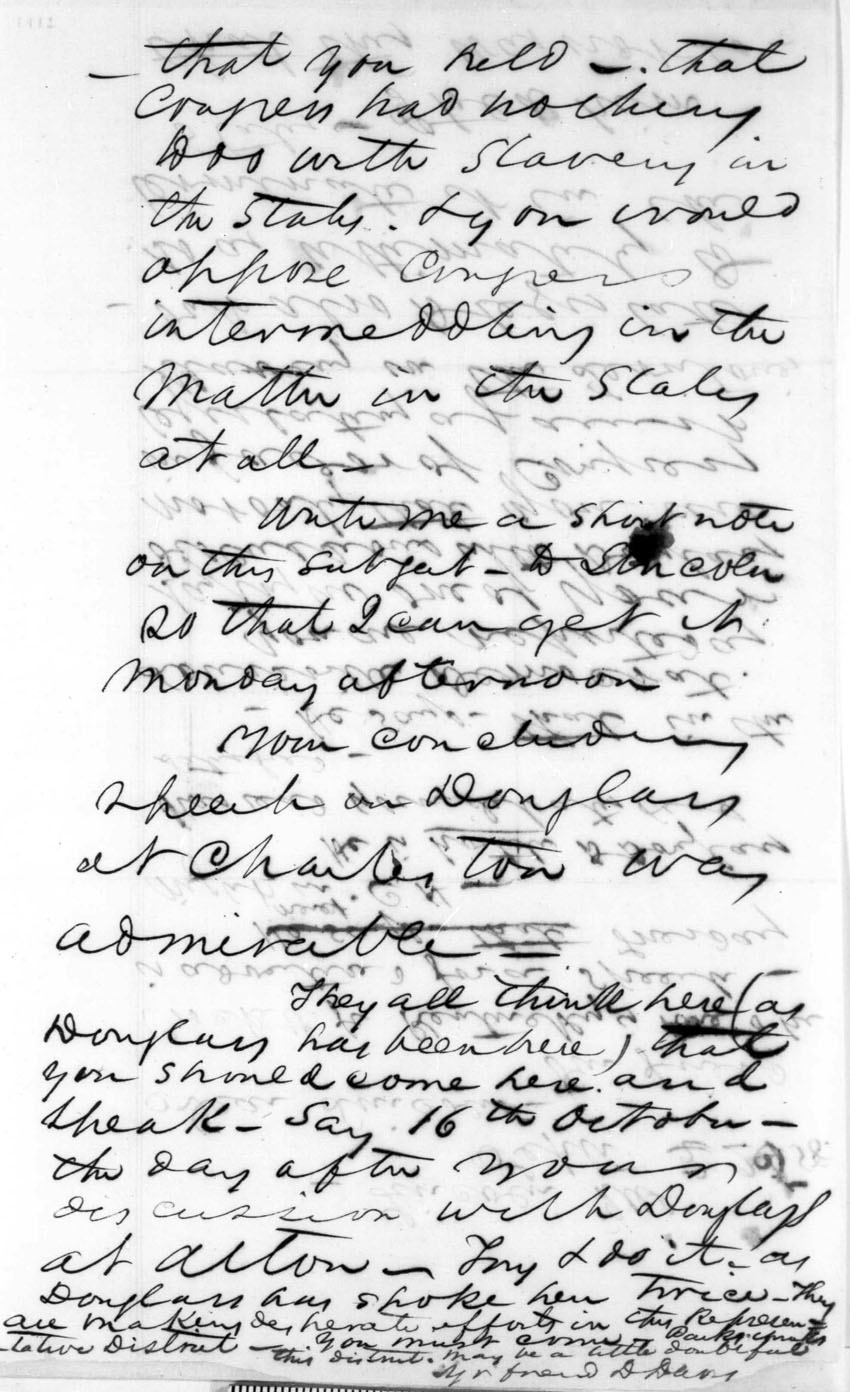 — that you held —. that
Congress had nothing
to do with Slavery in
the States. & you would
oppose Congress
intermeddling in the
Matter in the States
at all —
Write me a short note
on this subject — to Lincoln
so that I can get it
Monday afternoon
Your concluding
speech on Douglass
at Charleston was
admirable =
They all think here (as
Douglass has been here) that
you should come here and
speak — Say 16th October —
the day after your
discussion with Douglass
at Alton — Try & do it — as
Douglass has spoke here twice — They
are making desperate efforts in this Represen-
-tative District — You must come —
this district may be a little doubtful
Yr friend D Davis